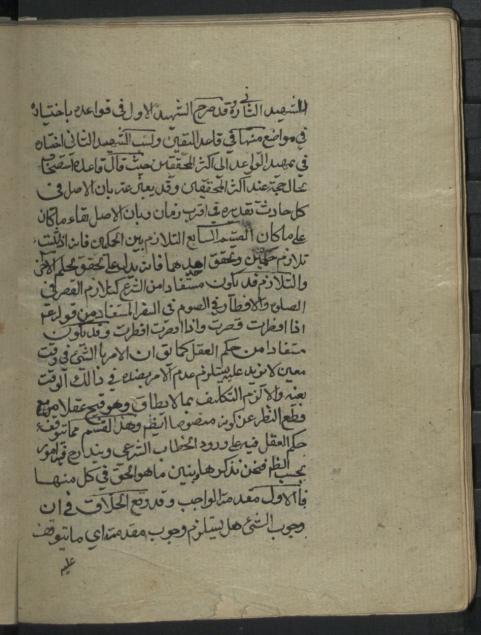 الشهيد الثاني وقد صرح الشهيد الاول في قواعده باختياره
في مواضع منها في قاعدة اليقين ونسب الشهيد الثاني اختياره
في تمهيد القواعد الى اكثر المحققين حيث قال قاعدة استصحاب
الحال حجة عند اكثر المحققين وقد يعبر عنه بان الاصل في
كل حادث تقديره في اقرب زمان وبان الاصل بقاء ما كان
على ما كان القسم السابع التلازم بين الحكمين فانه اذا ثبت
تلازم حكمين وتحقق احدهما فانه يدل على تحقق الحكم الاخر
والتلازم قد يكون مستفادا من الشرع كتلازم القصر في
الصلوة والافطار في الصوم في السفر المستفاد من قولهم
اذا افطرت قصرت واذا قصرت افطرت وقد يكون
مستفادا من حكم العقل كما يق ان الامر بالشئ في وقت
معين لا يزيد عليه يستلزم عدم الامر بضده في ذالك الوقت
بعينه والا لزم التكليف بما لا يطاق وهو قبيح عقلا مع
قطع النظر عن كونه منصوصا ايضم وهذا القسم مما يتوقف
حكم العقل فيه على ورود الخطاب الشرعي ويندارج فيه امور
بحسب الظم فنحن نذكرها ونبين ما هو الحق في كل منها
فالاول مقدمة الواجب وقد وقع الخلاف في ان
وجوب الشئ هل يستلزم وجوب مقدمته اي ما يتوقف
عليه